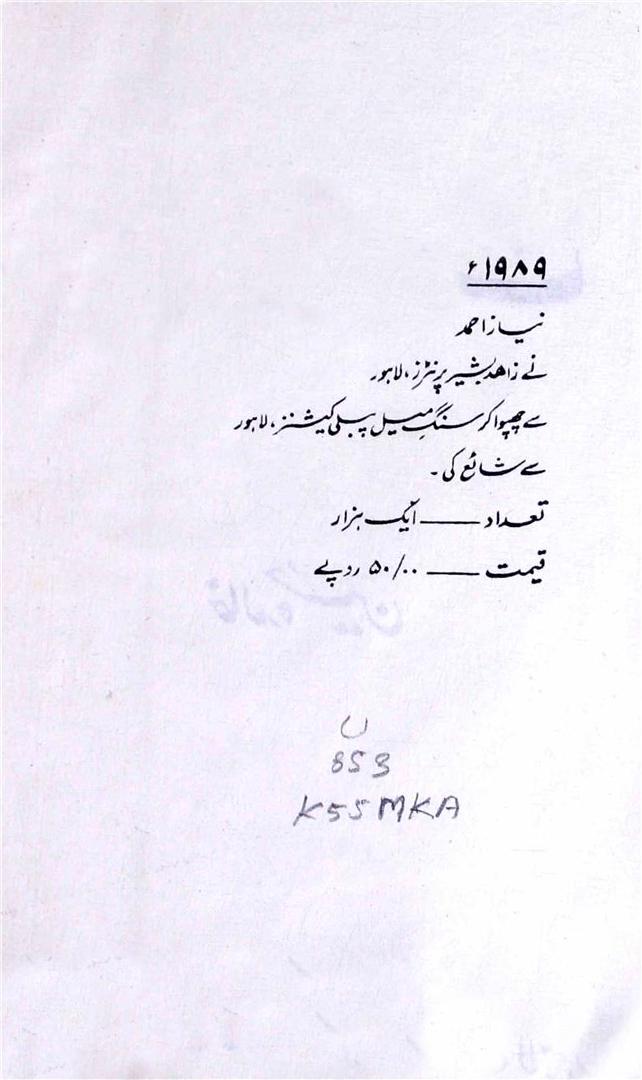 ۱۹۸۹ء
نیاز احمد
نے زاهد بشیر پرنٹرز، لاہور
سے چھپوا کر سنگِ میل پبلی کیشنز، لاہور
سے شائع کی۔
تعداد —— ایک ہزار
قیمت —— ۵۰/۰۰ روپے
U
853
K55MKA